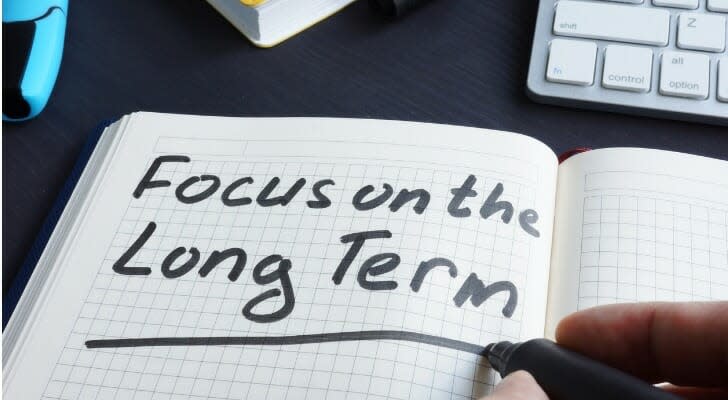 Focus on the
Long Term
shift
Z
fn
control
alt
option